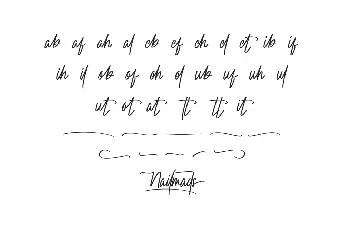 ab af ah al cb cf ch cl et ib if
ih il ob of oh ol ub uf uh ul
ut ot at tt tt it